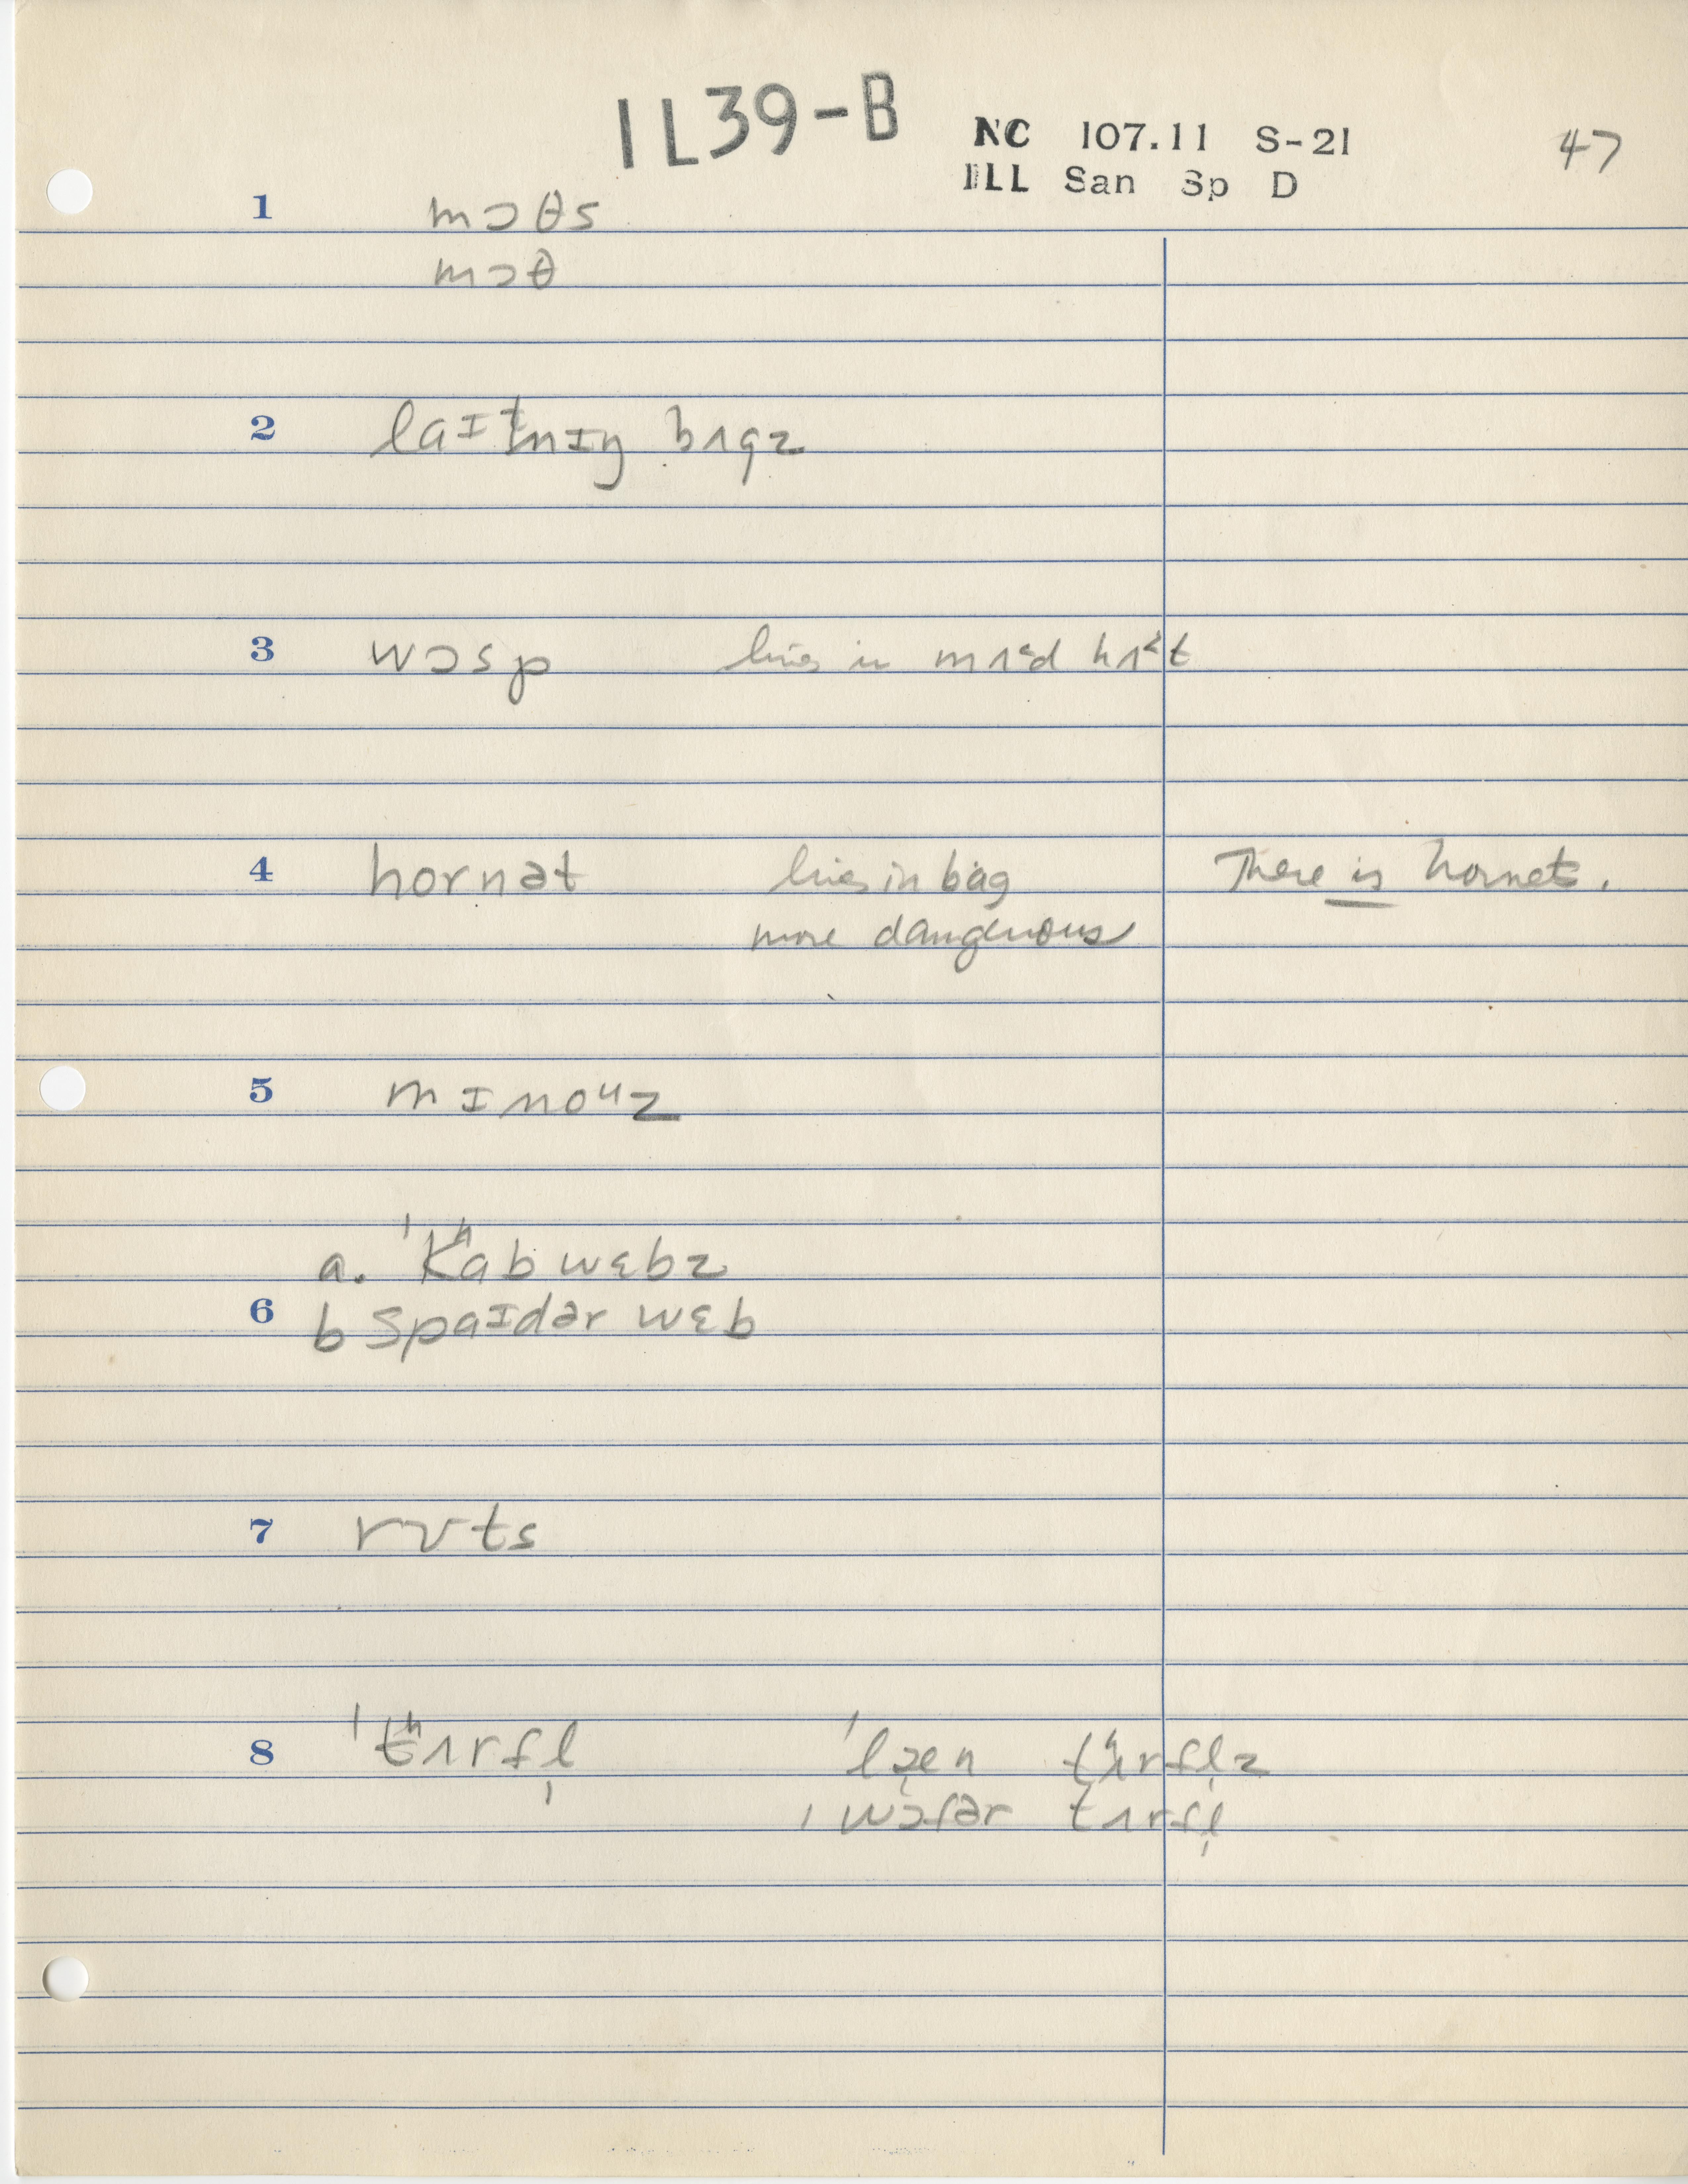 IL39-B
NC 107.11 S-21 47
ILL San Sp D
1 mɔθs
mɔθ
2 laɪtnɪŋ bʌgz
3 wɔsp lives in mʌd hʌt
4 hornət lives in bag There is hornets.
more dangerous
5 mɪnoᵘz
a. ˈkʰabwɛbz
6 b spaɪdər wɛb
7 rʊts
8 ˈtʰʌrfl̩ ˈlæn tʰʌrfl̩z
ˈwɔfər tʌrfl̩